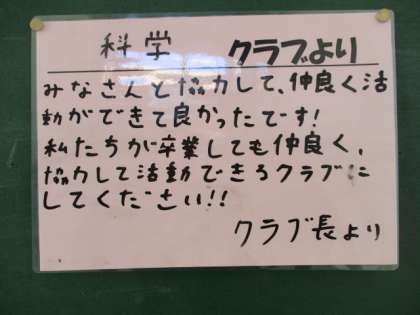 科学 クラブより
みなさんと協力して、仲良く活
動ができて良かったです!
私たちが卒業しても仲良く、
協力して活動できるクラブに
してください!!
クラブ長より